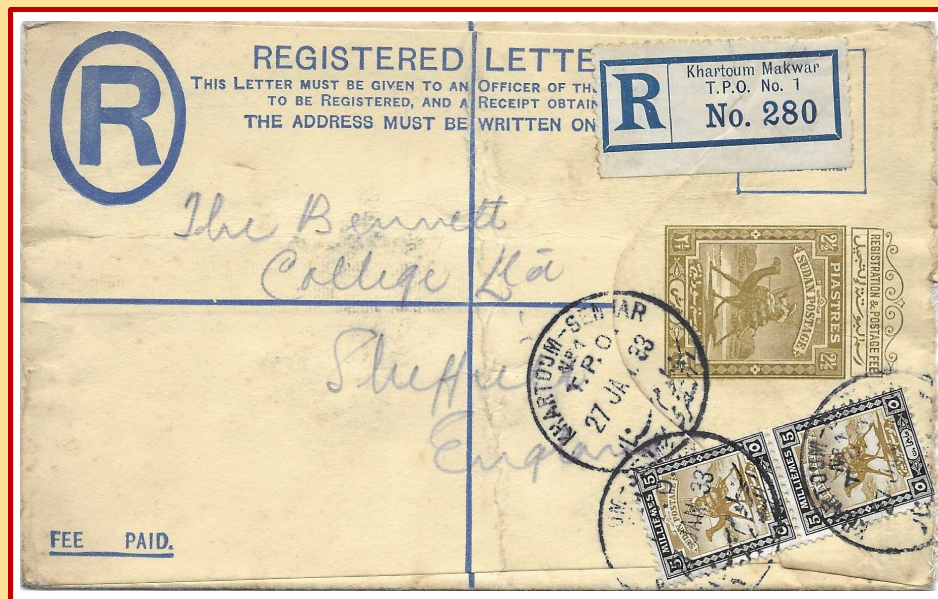 REGISTERED LETTE
THIS LETTER MUST BE GIVEN TO AN OFFICER OF TH
TO BE REGISTERED, AND A RECEIPT OBTAIN
THE ADDRESS MUST BE WRITTEN ON
R
R
Khartoum Makwar
T.P.O. No. 1
No. 280
The Bennett
College Ltd
Sheffield
England
2½ PIASTRES 2½
SUDAN POSTAGE
REGISTRATION & POSTAGE FEE
KHARTOUM-SENNAR
No 1
T.P.O.
27 JA 33
5 MILLIEMES 5
SUDAN POSTAGE
33
5 MILLIEMES 5
KHARTOUM-
FEE PAID.